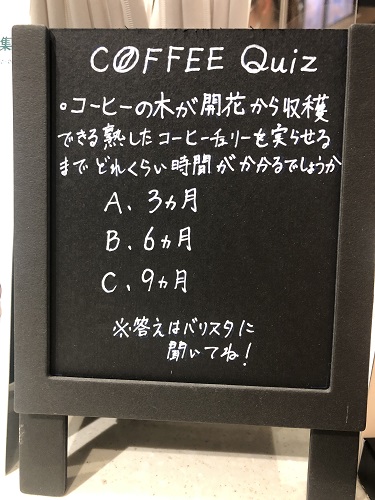 集
COFFEE Quiz
・コーヒーの木が開花から収穫
できる熟したコーヒーチェリーを実らせる
までどれくらい時間がかかるでしょうか
A. 3ヵ月
B. 6ヵ月
C. 9ヵ月
※答えはバリスタに
聞いてね!